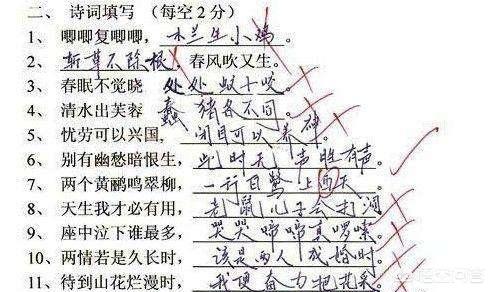 二、诗词填写 （每空2分）
1、唧唧复唧唧，木兰生小鸡。
2、斩草不除根，春风吹又生。
3、春眠不觉晓 处处蚊子咬
4、清水出芙蓉 蠢猪各不同。
5、忧劳可以兴国，闭目可以养神
6、别有幽愁暗恨生，此时无声胜有声
7、两个黄鹂鸣翠柳，一行白鹭上西天
8、天生我才必有用，老鼠儿子会打洞
9、座中泣下谁最多，哭哭啼啼真啰嗦
10、两情若是久长时，该是两人成婚时
11、待到山花烂漫时，我要奋力把花采。